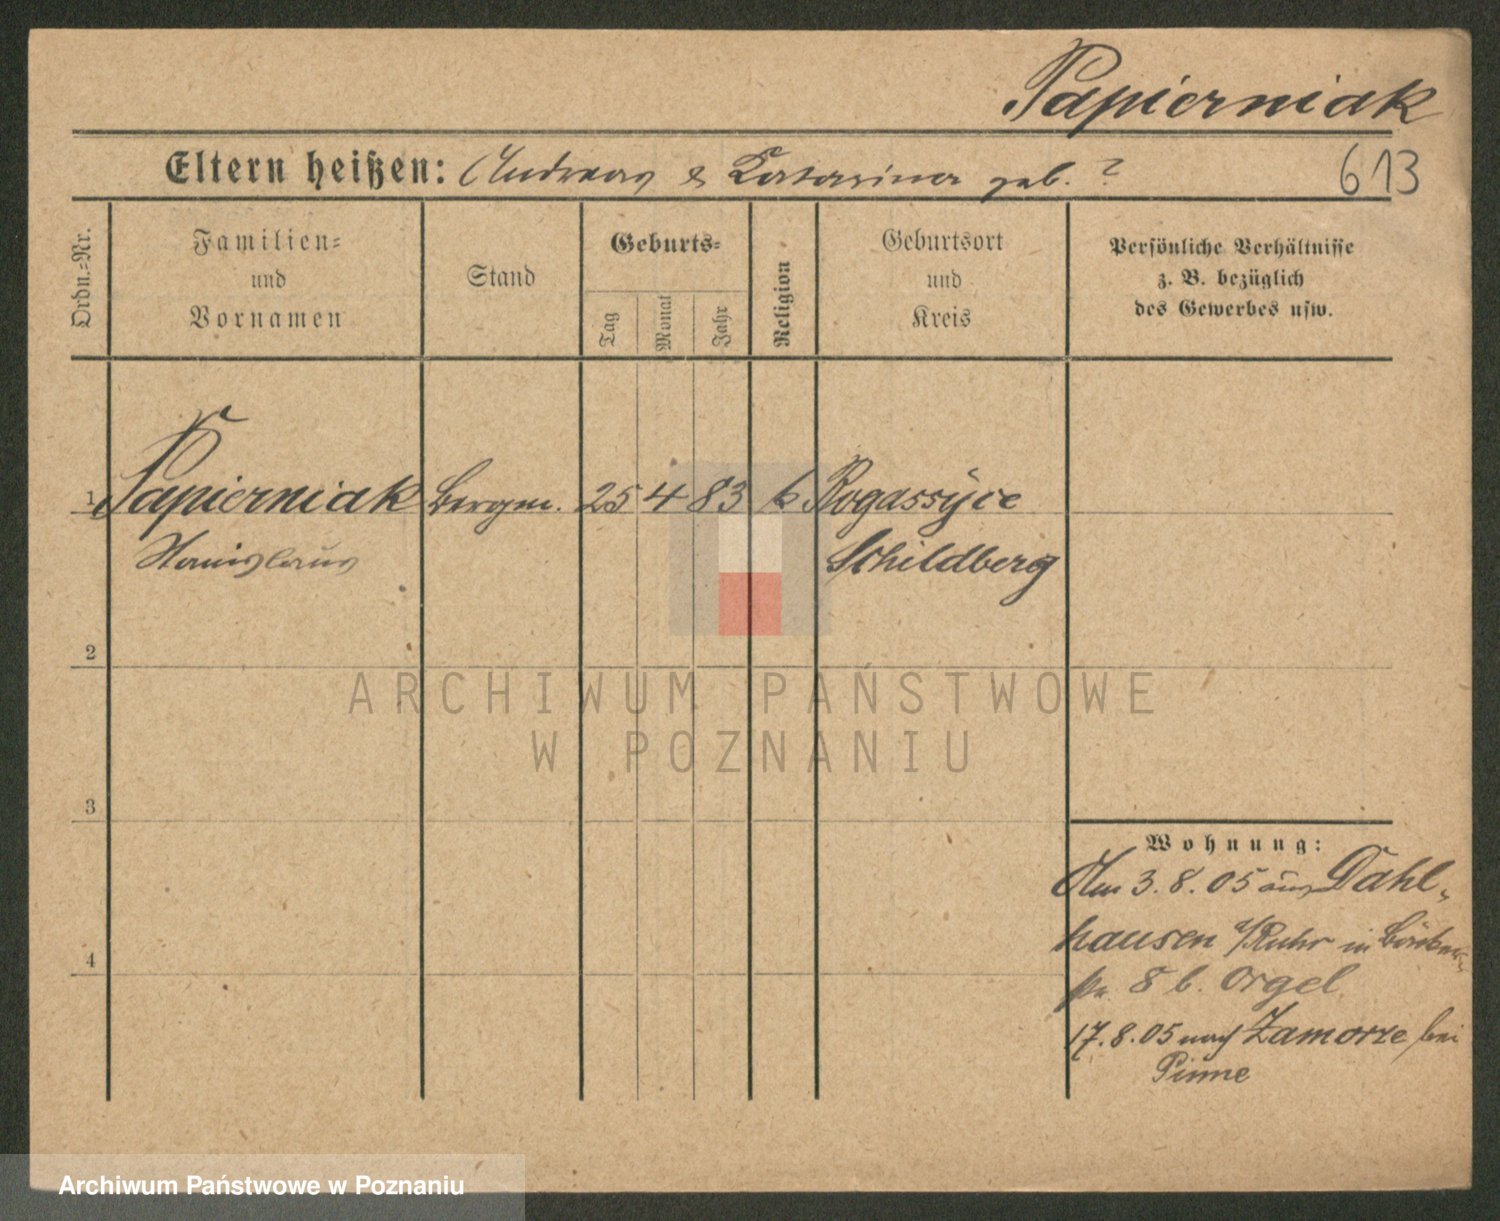 Papierniak
Eltern heißen: Andreas & Katarina geb. ?
613
Ordn.=Nr.
Familien=
und
Vornamen
Stand
Geburts=
Tag
Monat
Jahr
Religion
Geburtsort
und
Kreis
Persönliche Verhältnisse
z. B. bezüglich
des Gewerbes usw.
1 Papierniak Bergm. 25 4 83 k Rogassyce
Stanislaus Schildberg
2
ARCHIWUM PAŃSTWOWE
W POZNANIU
3
Wohnung:
Am 3.8.05 aus Dahl-
hausen a/Ruhr in
4
8 b. Orgel
17.8.05 nach Zamorze bei
Pinne
Archiwum Państwowe w Poznaniu